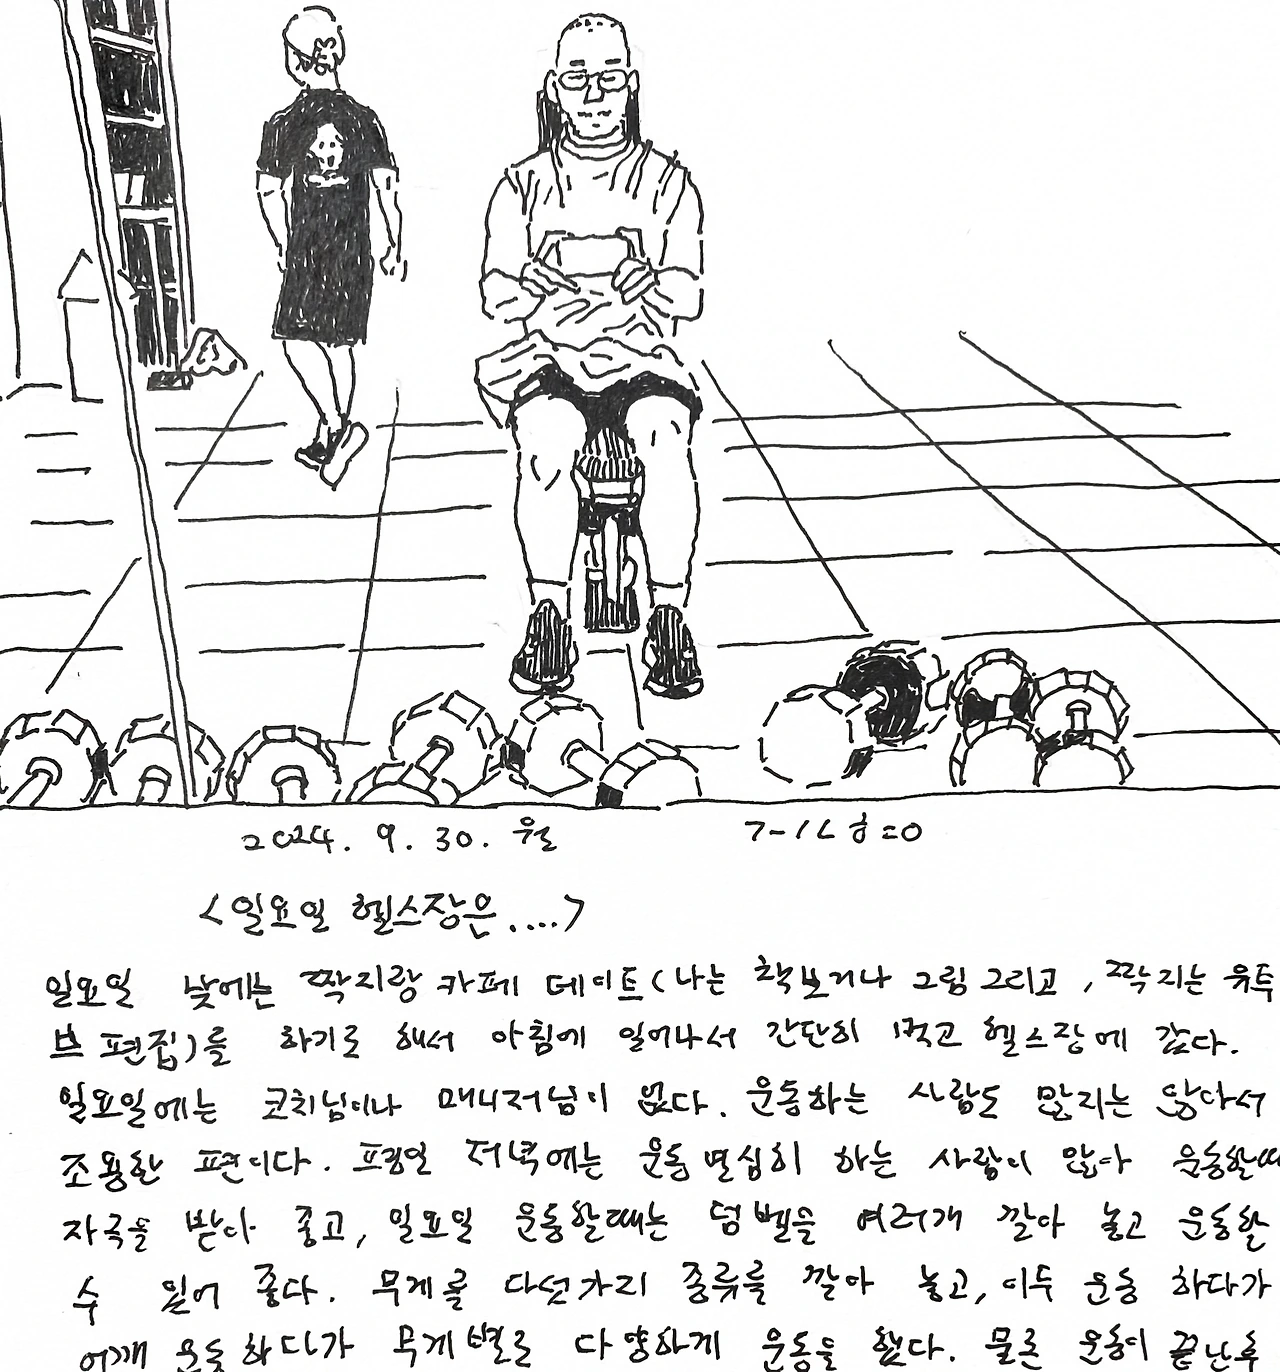 2024. 9. 30. 월
<일요일 헬스장은....>
일요일 낮에는 짝지랑 카페 데이트(나는 책보거나 그림 그리고, 짝지는 유투
브 편집)를 하기로 해서 아침에 일어나서 간단히 먹고 헬스장에 갔다.
일요일에는 코치님이나 매니저님이 없다. 운동하는 사람도 많지는 않아서
조용한 편이다. 평일 저녁에는 운동 열심히 하는 사람이 많아 운동할때
자극을 받아 좋고, 일요일 운동할때는 덤벨을 여러개 깔아 놓고 운동할
수 있어 좋다. 무게를 다섯가지 종류를 깔아 놓고, 이두 운동 하다가
어깨 운동하다가 무게별로 다양하게 운동을 했다. 물론 운동이 끝난후